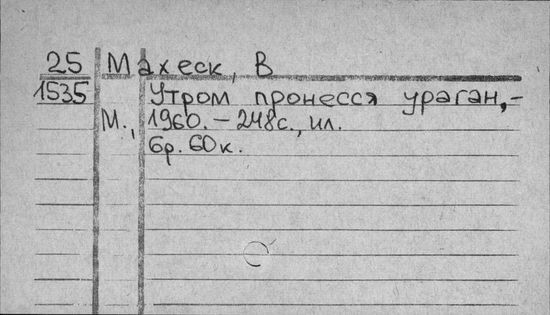 25 Махеск, В
1535 Утром пронесся ураган,-
М., 1960.-248с., ил.
6р. 60к.